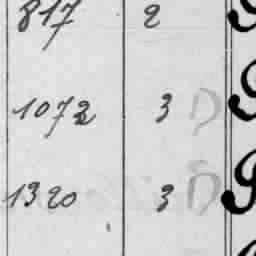 817 2
1072 3 D
1320 3 D